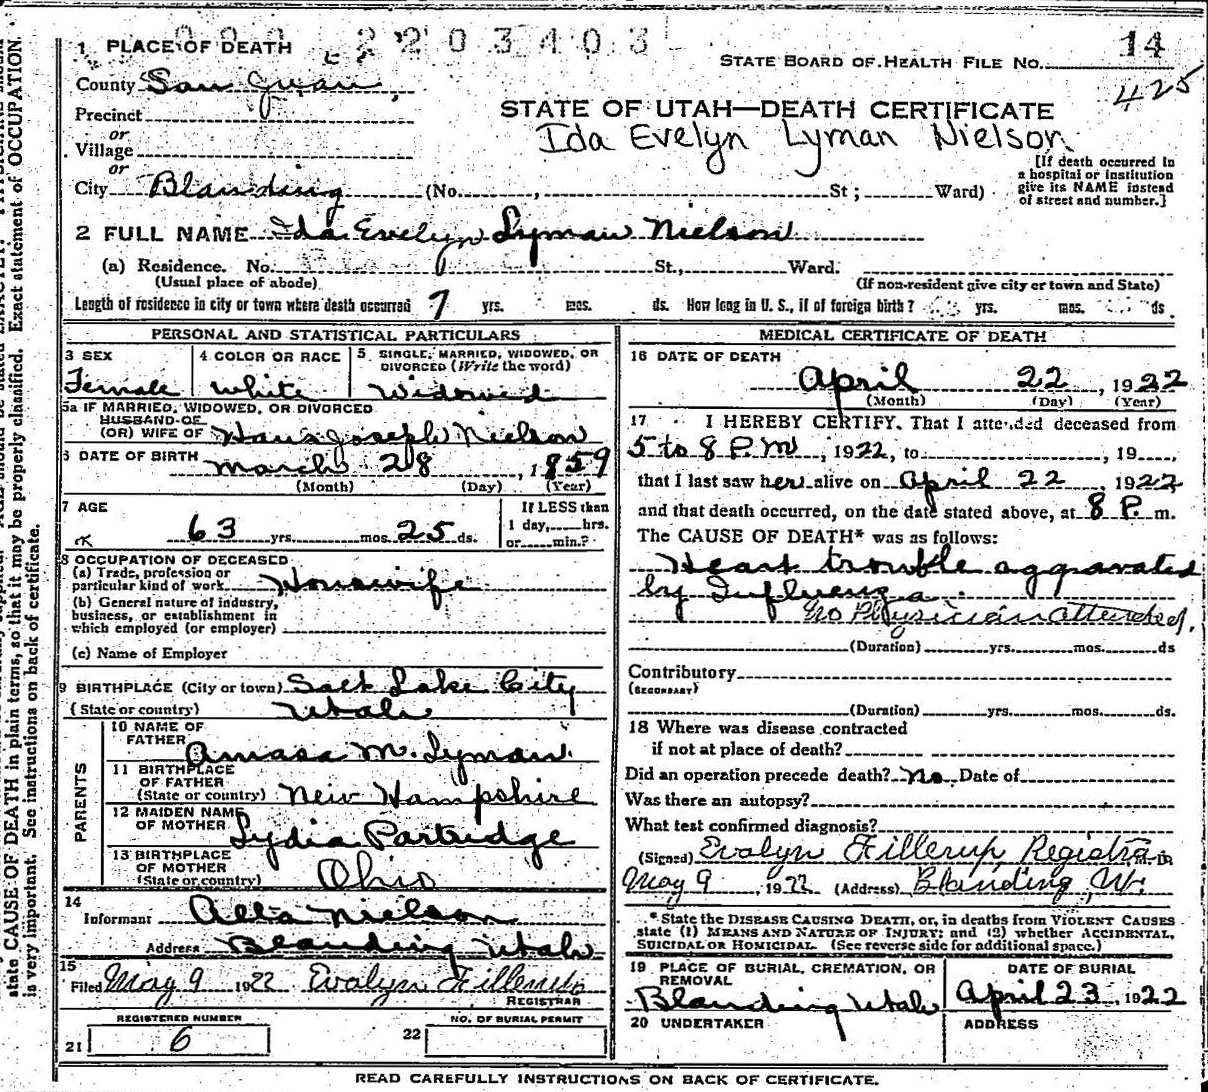 2203403 14
1 PLACE OF DEATH
STATE BOARD OF HEALTH FILE NO.
County San Juan
425
STATE OF UTAH—DEATH CERTIFICATE
Precinct
or
Ida Evelyn Lyman Nielson
Village
or
City Blanding (No. , St ; Ward)
[If death occurred in
a hospital or institution
give its NAME instead
of street and number.]
2 FULL NAME Ida Evelyn Lyman Nielson
(a) Residence. No. St., Ward.
(Usual place of abode) (If non-resident give city or town and State)
Length of residence in city or town where death occurred 7 yrs. mos. ds. How long in U. S., if of foreign birth? yrs. mos. ds.
PERSONAL AND STATISTICAL PARTICULARS
3 SEX 4 COLOR OR RACE 5 SINGLE, MARRIED, WIDOWED, OR
DIVORCED (Write the word)
Female White Widowed
5a IF MARRIED, WIDOWED, OR DIVORCED
HUSBAND OF
(OR) WIFE OF Hans Joseph Nielson
6 DATE OF BIRTH March 28, 1859
(Month) (Day) (Year)
7 AGE If LESS than
63 yrs. mos. 25 ds. 1 day, hrs.
or min.?
8 OCCUPATION OF DECEASED
(a) Trade, profession or
particular kind of work Housewife
(b) General nature of industry,
business, or establishment in
which employed (or employer)
(c) Name of Employer
9 BIRTHPLACE (City or town) Salt Lake City
(State or country) Utah
PARENTS
10 NAME OF
FATHER Amasa M. Lyman
11 BIRTHPLACE
OF FATHER
(State or country) New Hampshire
12 MAIDEN NAME
OF MOTHER Lydia Partridge
13 BIRTHPLACE
OF MOTHER
(State or country) Ohio
14
Informant Alta Nielson
Address Blanding Utah
15
Filed May 9 1922 Evalyn Fillerup
REGISTRAR
REGISTERED NUMBER NO. OF BURIAL PERMIT
21 6 22
MEDICAL CERTIFICATE OF DEATH
16 DATE OF DEATH
April 22, 1922
(Month) (Day) (Year)
17 I HEREBY CERTIFY. That I attended deceased from
5 to 8 P.M, 1922, to , 19
that I last saw her alive on April 22, 1922
and that death occurred, on the date stated above, at 8 P. m.
The CAUSE OF DEATH* was as follows:
Heart trouble aggravated
by Influenza.
No Physician attended.
(Duration) yrs. mos. ds
Contributory
(SECONDARY)
(Duration) yrs. mos. ds.
18 Where was disease contracted
if not at place of death?
Did an operation precede death? No Date of
Was there an autopsy?
What test confirmed diagnosis?
(Signed) Evalyn Fillerup Registrar
May 9, 1922 (Address) Blanding, Ut.
*State the DISEASE CAUSING DEATH, or, in deaths from VIOLENT CAUSES
state (1) MEANS AND NATURE OF INJURY; and (2) whether ACCIDENTAL,
SUICIDAL OR HOMICIDAL. (See reverse side for additional space.)
19 PLACE OF BURIAL, CREMATION, OR
REMOVAL
DATE OF BURIAL
Blanding Utah April 23, 1922
20 UNDERTAKER ADDRESS
READ CAREFULLY INSTRUCTIONS ON BACK OF CERTIFICATE.
state CAUSE OF DEATH in plain terms, so that it may be properly classified. Exact statement of OCCUPATION
is very important. See instructions on back of certificate.